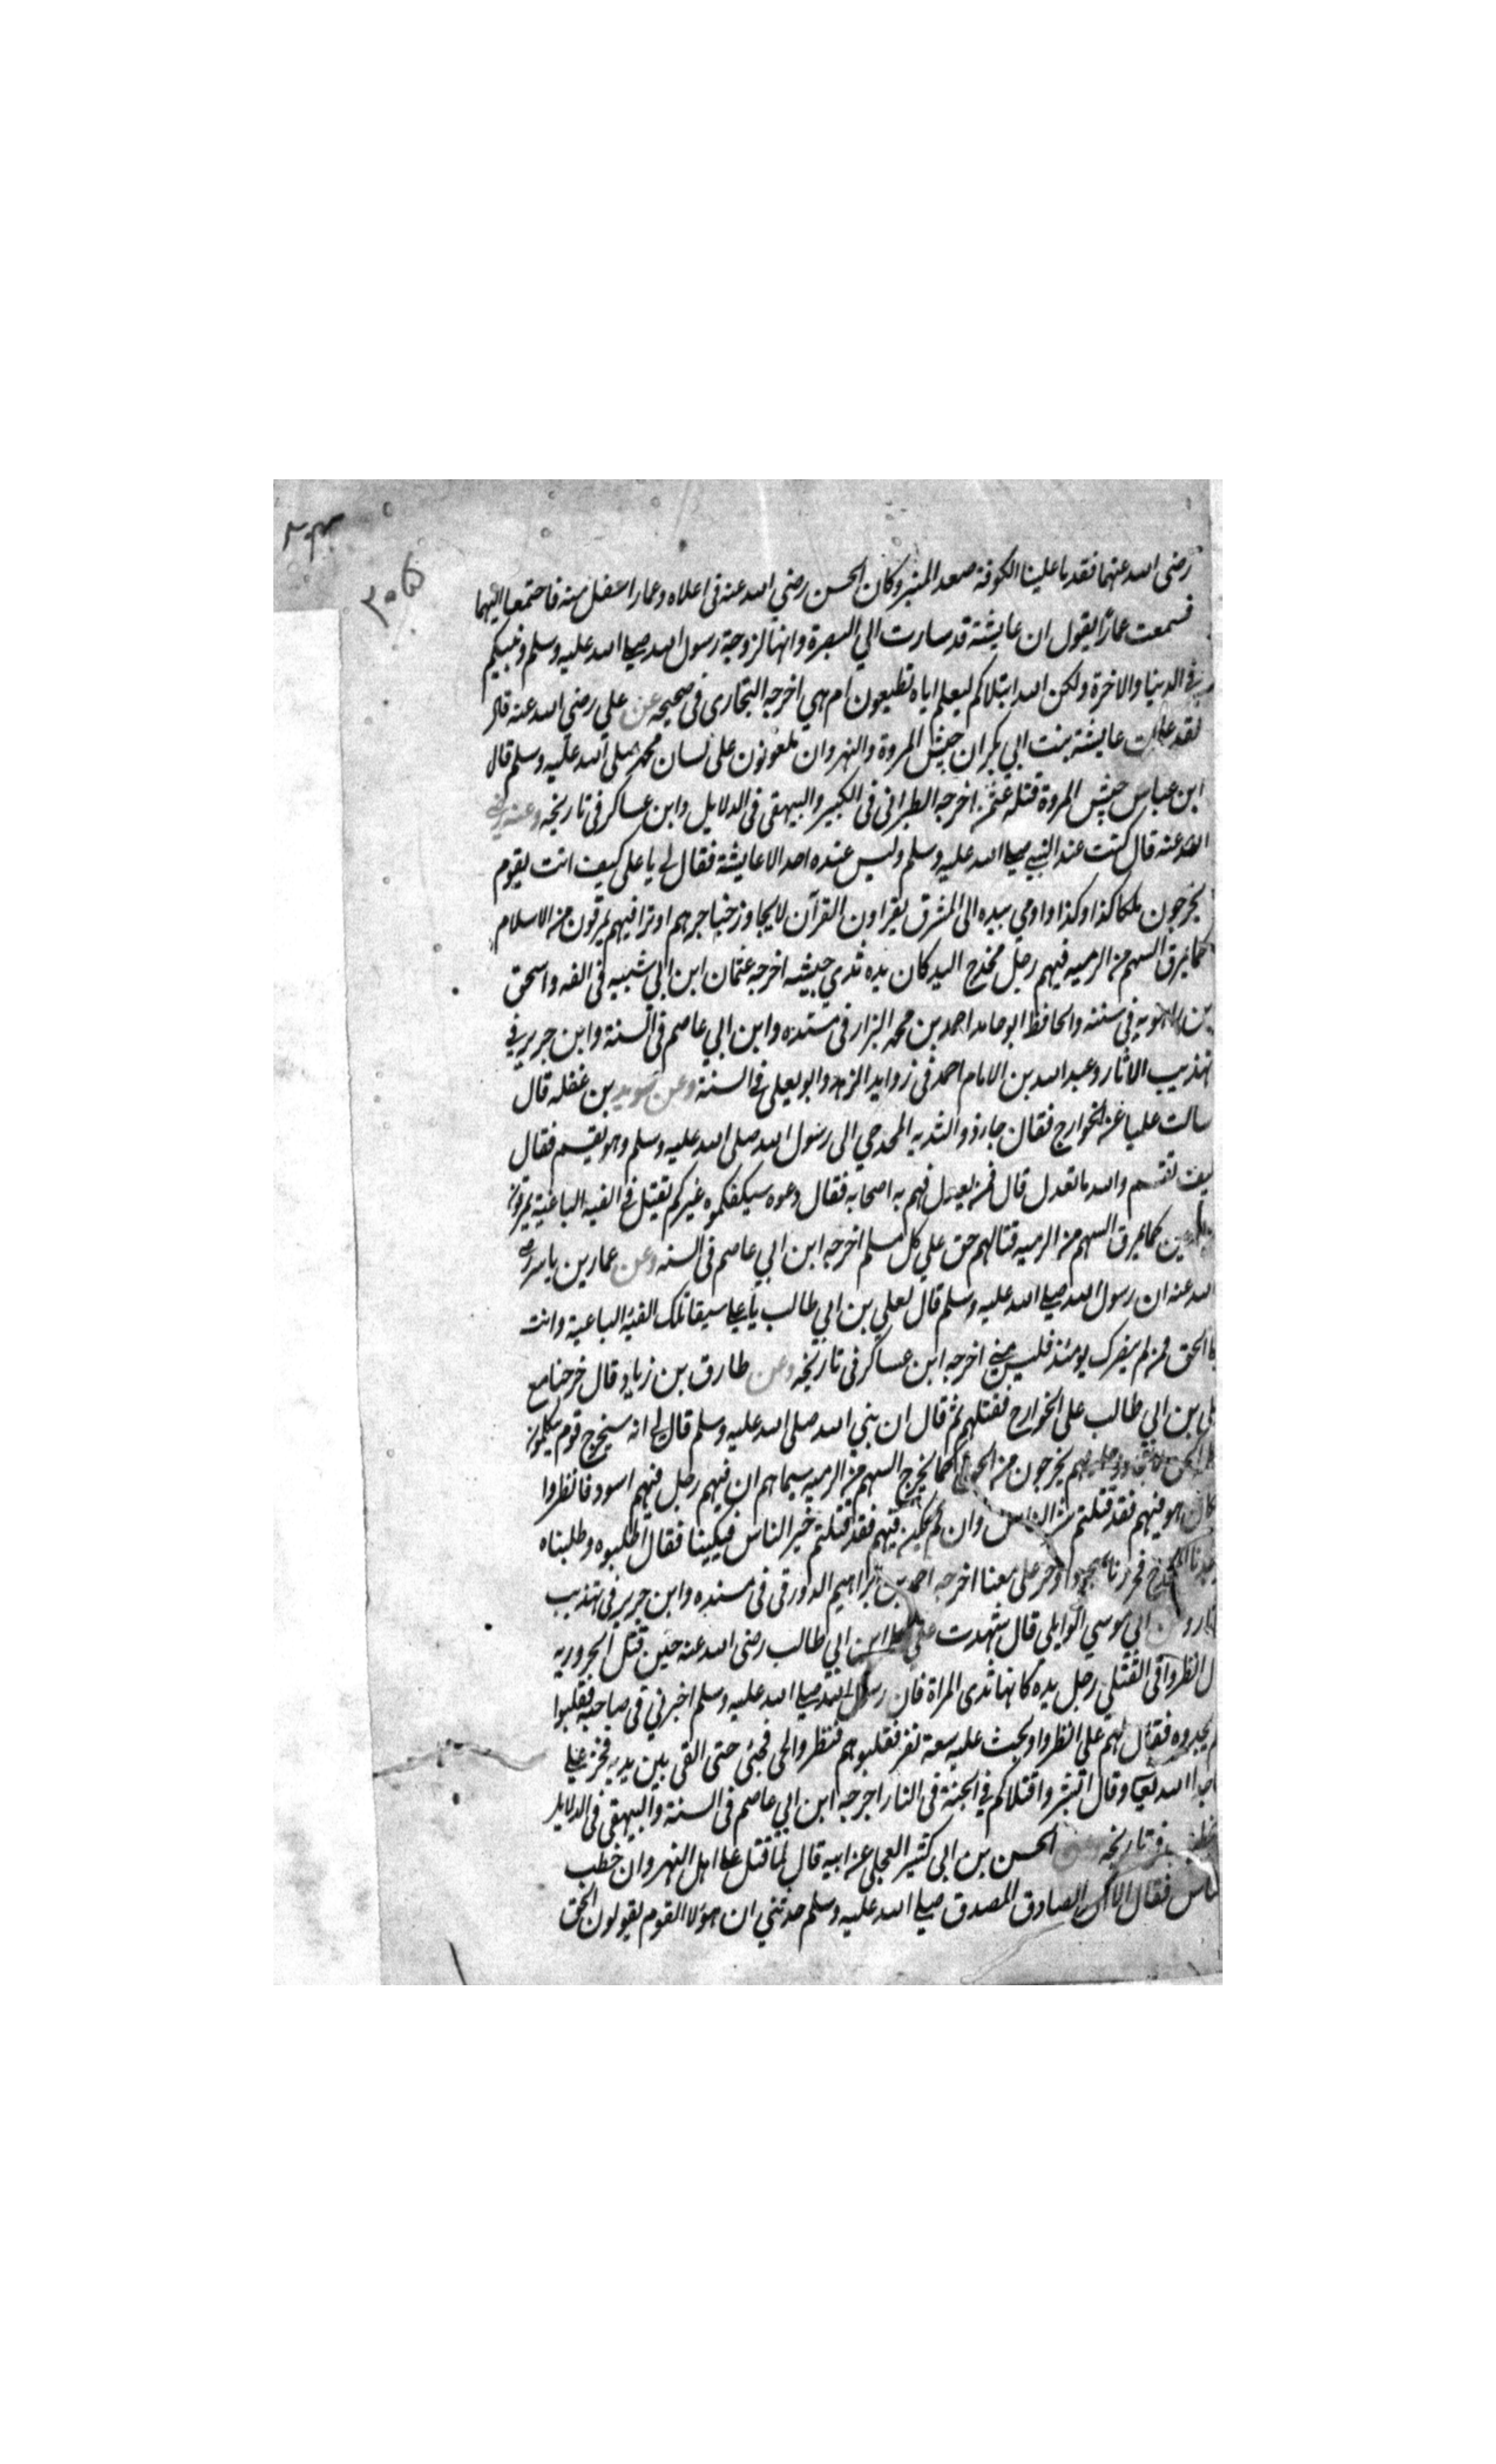 ٣٠٥
رضی الله عنهما فقدما علينا الكوفة صعد المنبر وكان الحسن رضي الله عنه فی اعلاه وعمار اسفل منه فاجتمعنا اليهما
فسمعت عمارًا يقول ان عايشة قد سارت الي البصرة وانها لزوجة رسول الله صلی الله عليه وسلم ونبيكم
في الدنيا والاخرة ولكن الله ابتلاكم ليعلم اياه تطيعون ام هي اخرجه البخاری فی صحيحه عن علي رضي الله عنه قال
لقد علمت عايشة بنت ابي بكر ان جيش المروة والنهروان ملعونون علی لسان محمد صلی الله عليه وسلم قال
ابن عباس جيش المروة قتلة عثمن اخرجه الطبرانی فی الكبير والبيهقی فی الدلايل وابن عساكر فی تاريخه وعنه رضي
الله عنه قال كنت عند النبي صلی الله عليه وسلم وليس عنده احد الا عايشة فقال لي يا علی كيف انت بقوم
يخرجون بمكان كذا وكذا واومی بيده الی المشرق يقراون القرآن لا يجاوز حناجرهم او تراقيهم يمرقون من الاسلام
كما يمرق السهم من الرميه فيهم رجل مخدج اليد كان يده ثدي حبشيه اخرجه عثمان ابن ابي شيبه فی الفه واسحق
بن راهويه فی سننه والحافظ ابو حامد احمد بن محمد البزار فی مسنده وابن ابي عاصم فی السنة وابن جرير في
تهذيب الاثار وعبد الله بن الامام احمد فی زوايد الزهد وابو يعلی فی السنة وعن سويد بن غفله قال
سالت عليا عن الخوارج فقال جا ذو الثديه المخدجي الی رسول الله صلی الله عليه وسلم وهو يقسم فقال
كيف تقسم والله ما تعدل قال فمن يعدل فهم به اصحابه فقال دعوه سيكفكموه غيركم يقتل فی الفية الباغية يمرقون
من الدين كما يمرق السهم من الرميه قتالهم حق علي كل مسلم اخرجه ابن ابي عاصم فی السنه وعن عمار بن ياسر رضی
الله عنه ان رسول الله صلی الله عليه وسلم قال لعلي بن ابي طالب يا علی سيقاتلك الفية الباغية وانت
علی الحق فمن لم ينصرك يومئذ فليس مني اخرجه ابن عساكر فی تاريخه وعن طارق بن زياد قال خرجنا مع
علي بن ابي طالب علی الخوارج فقتلهم ثم قال ان نبي الله صلی الله عليه وسلم قال لي انه سيخرج قوم يتكلمون
يخرجون من الحق كما يخرج السهم من الرميه سيماهم ان فيهم رجل منهم اسود فانظروا
كان هو فيهم فقد قتلتم شر الناس وان لم يكن فيهم فقد قتلتم خير الناس فبكينا فقال اطلبوه وطلبناه
فوجدنا المخدج فخررنا سجودا وخر علی معنا اخرجه احمد بن ابراهيم الدورقی فی مسنده وابن جرير فی تهذيب
الاثار وعن ابي موسي الوايلي قال شهدت علي ابن ابي طالب رضی الله عنه حين قتل الحروريه
قال انظروا فی القتلی رجل يده كانها ثدی المراة فان رسول الله صلی الله عليه وسلم اخبرني فی صاحبه فقلبوا
فلم يجدوه فقال لهم علی انظروا وبحث عليه سعة نفر فقلبوهم فنظروا فجئی حتی القی بين يديه فخر علي
ساجدا لله تعالی وقال ابشروا قتلاكم فی الجنة فی النار اخرجه ابن ابي عاصم فی السنة والبيهقی فی الدلايل
والخطيب فی تاريخه وعن الحسن بن ابی كثير العجلی عن ابيه قال لما قتل علی اهل النهروان خطب
الناس فقال الا ان الصادق المصدق صلی الله عليه وسلم حدثني ان هؤلا القوم يقولون الحق